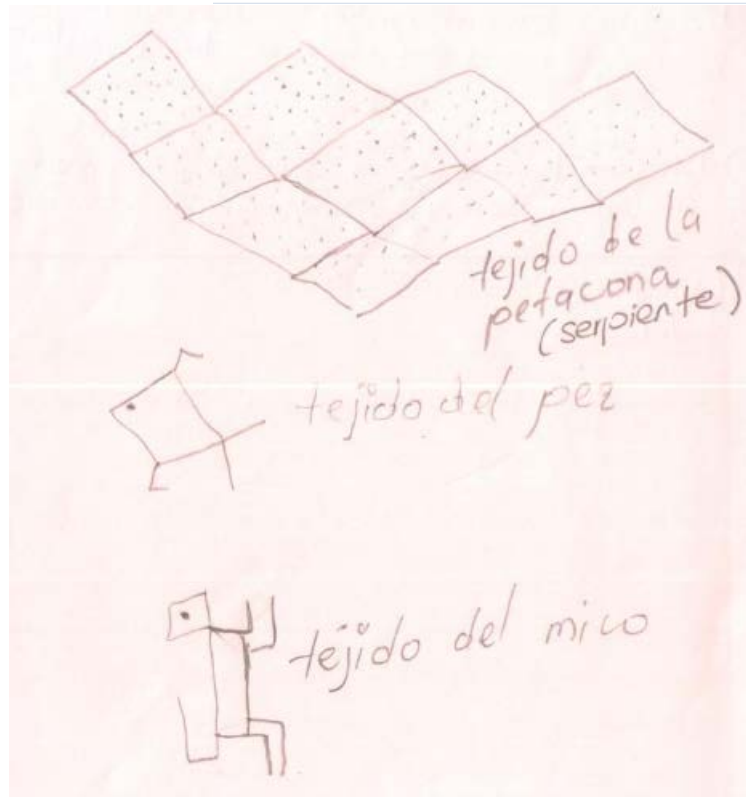 tejido de la
petacona
(serpiente)
tejido del pez
tejido del mico